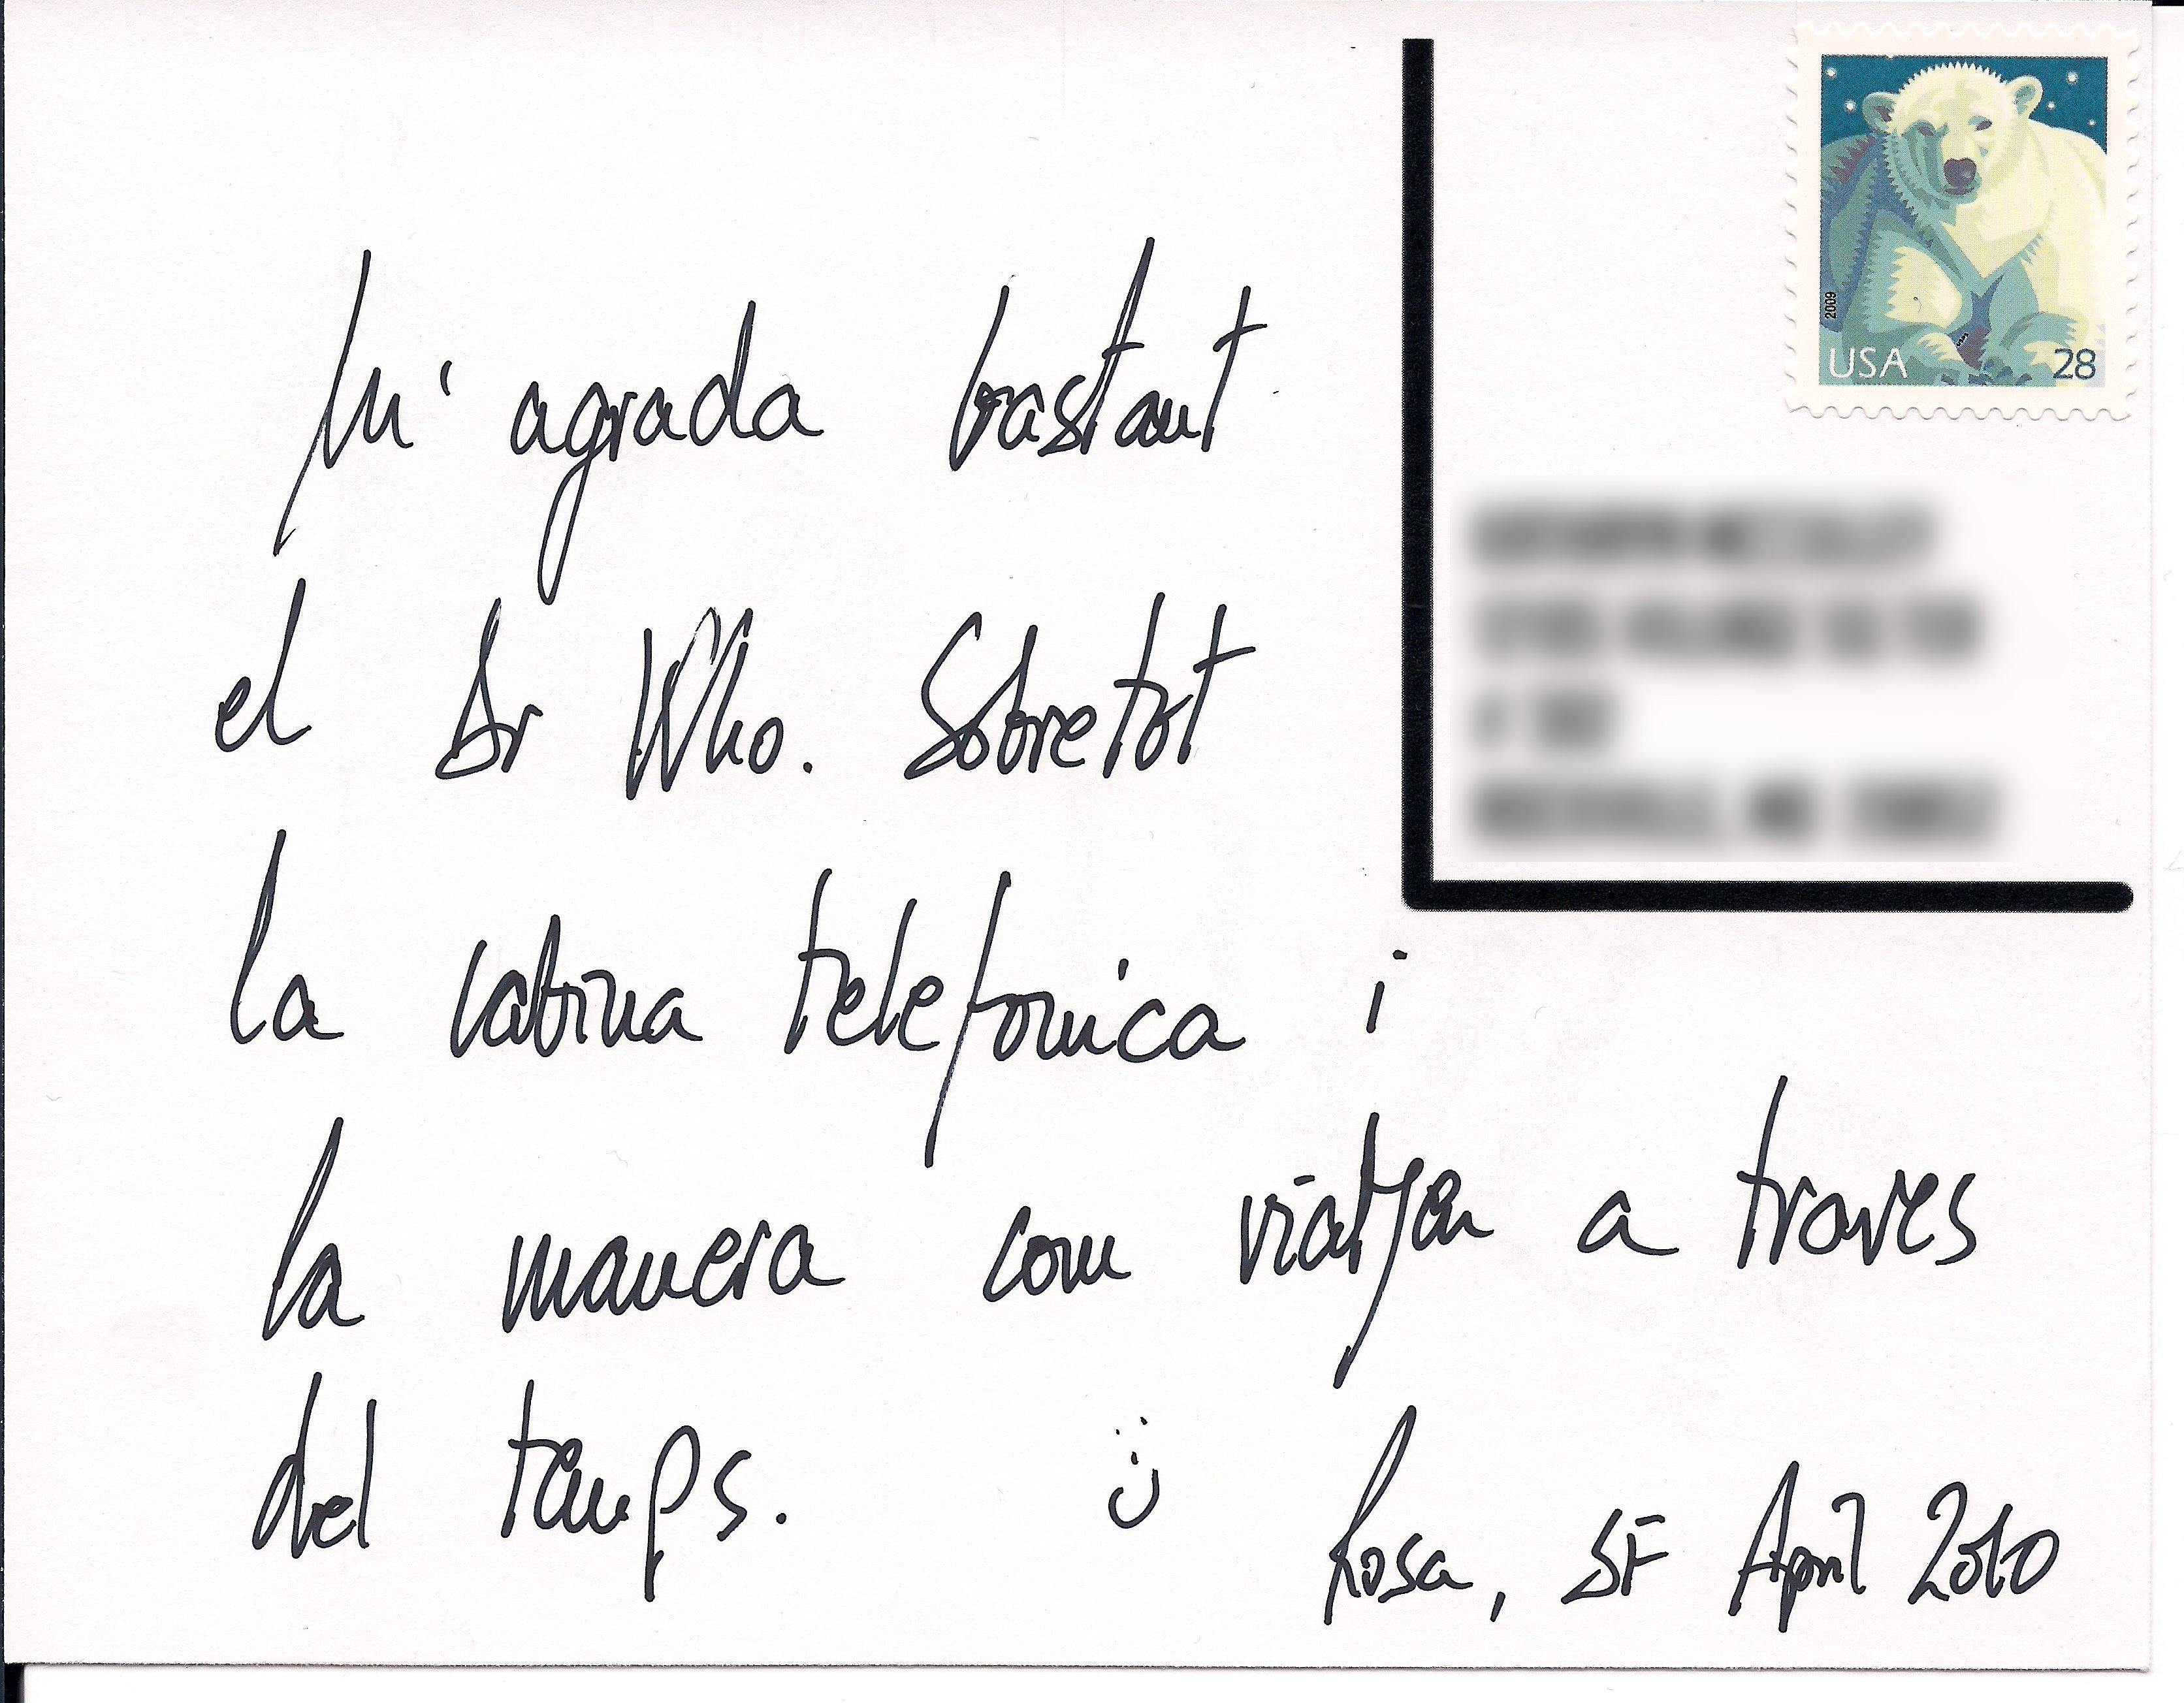 M'agrada bastant
el Dr Who. Sobretot
la cabina telefonica i
la manera com viatjen a traves
del temps. :)
Rosa, SF April 2010
2009
USA 28